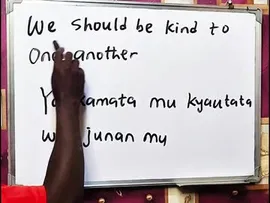 We should be kind to
One another
Ya kamata mu kyautata
wa junan mu